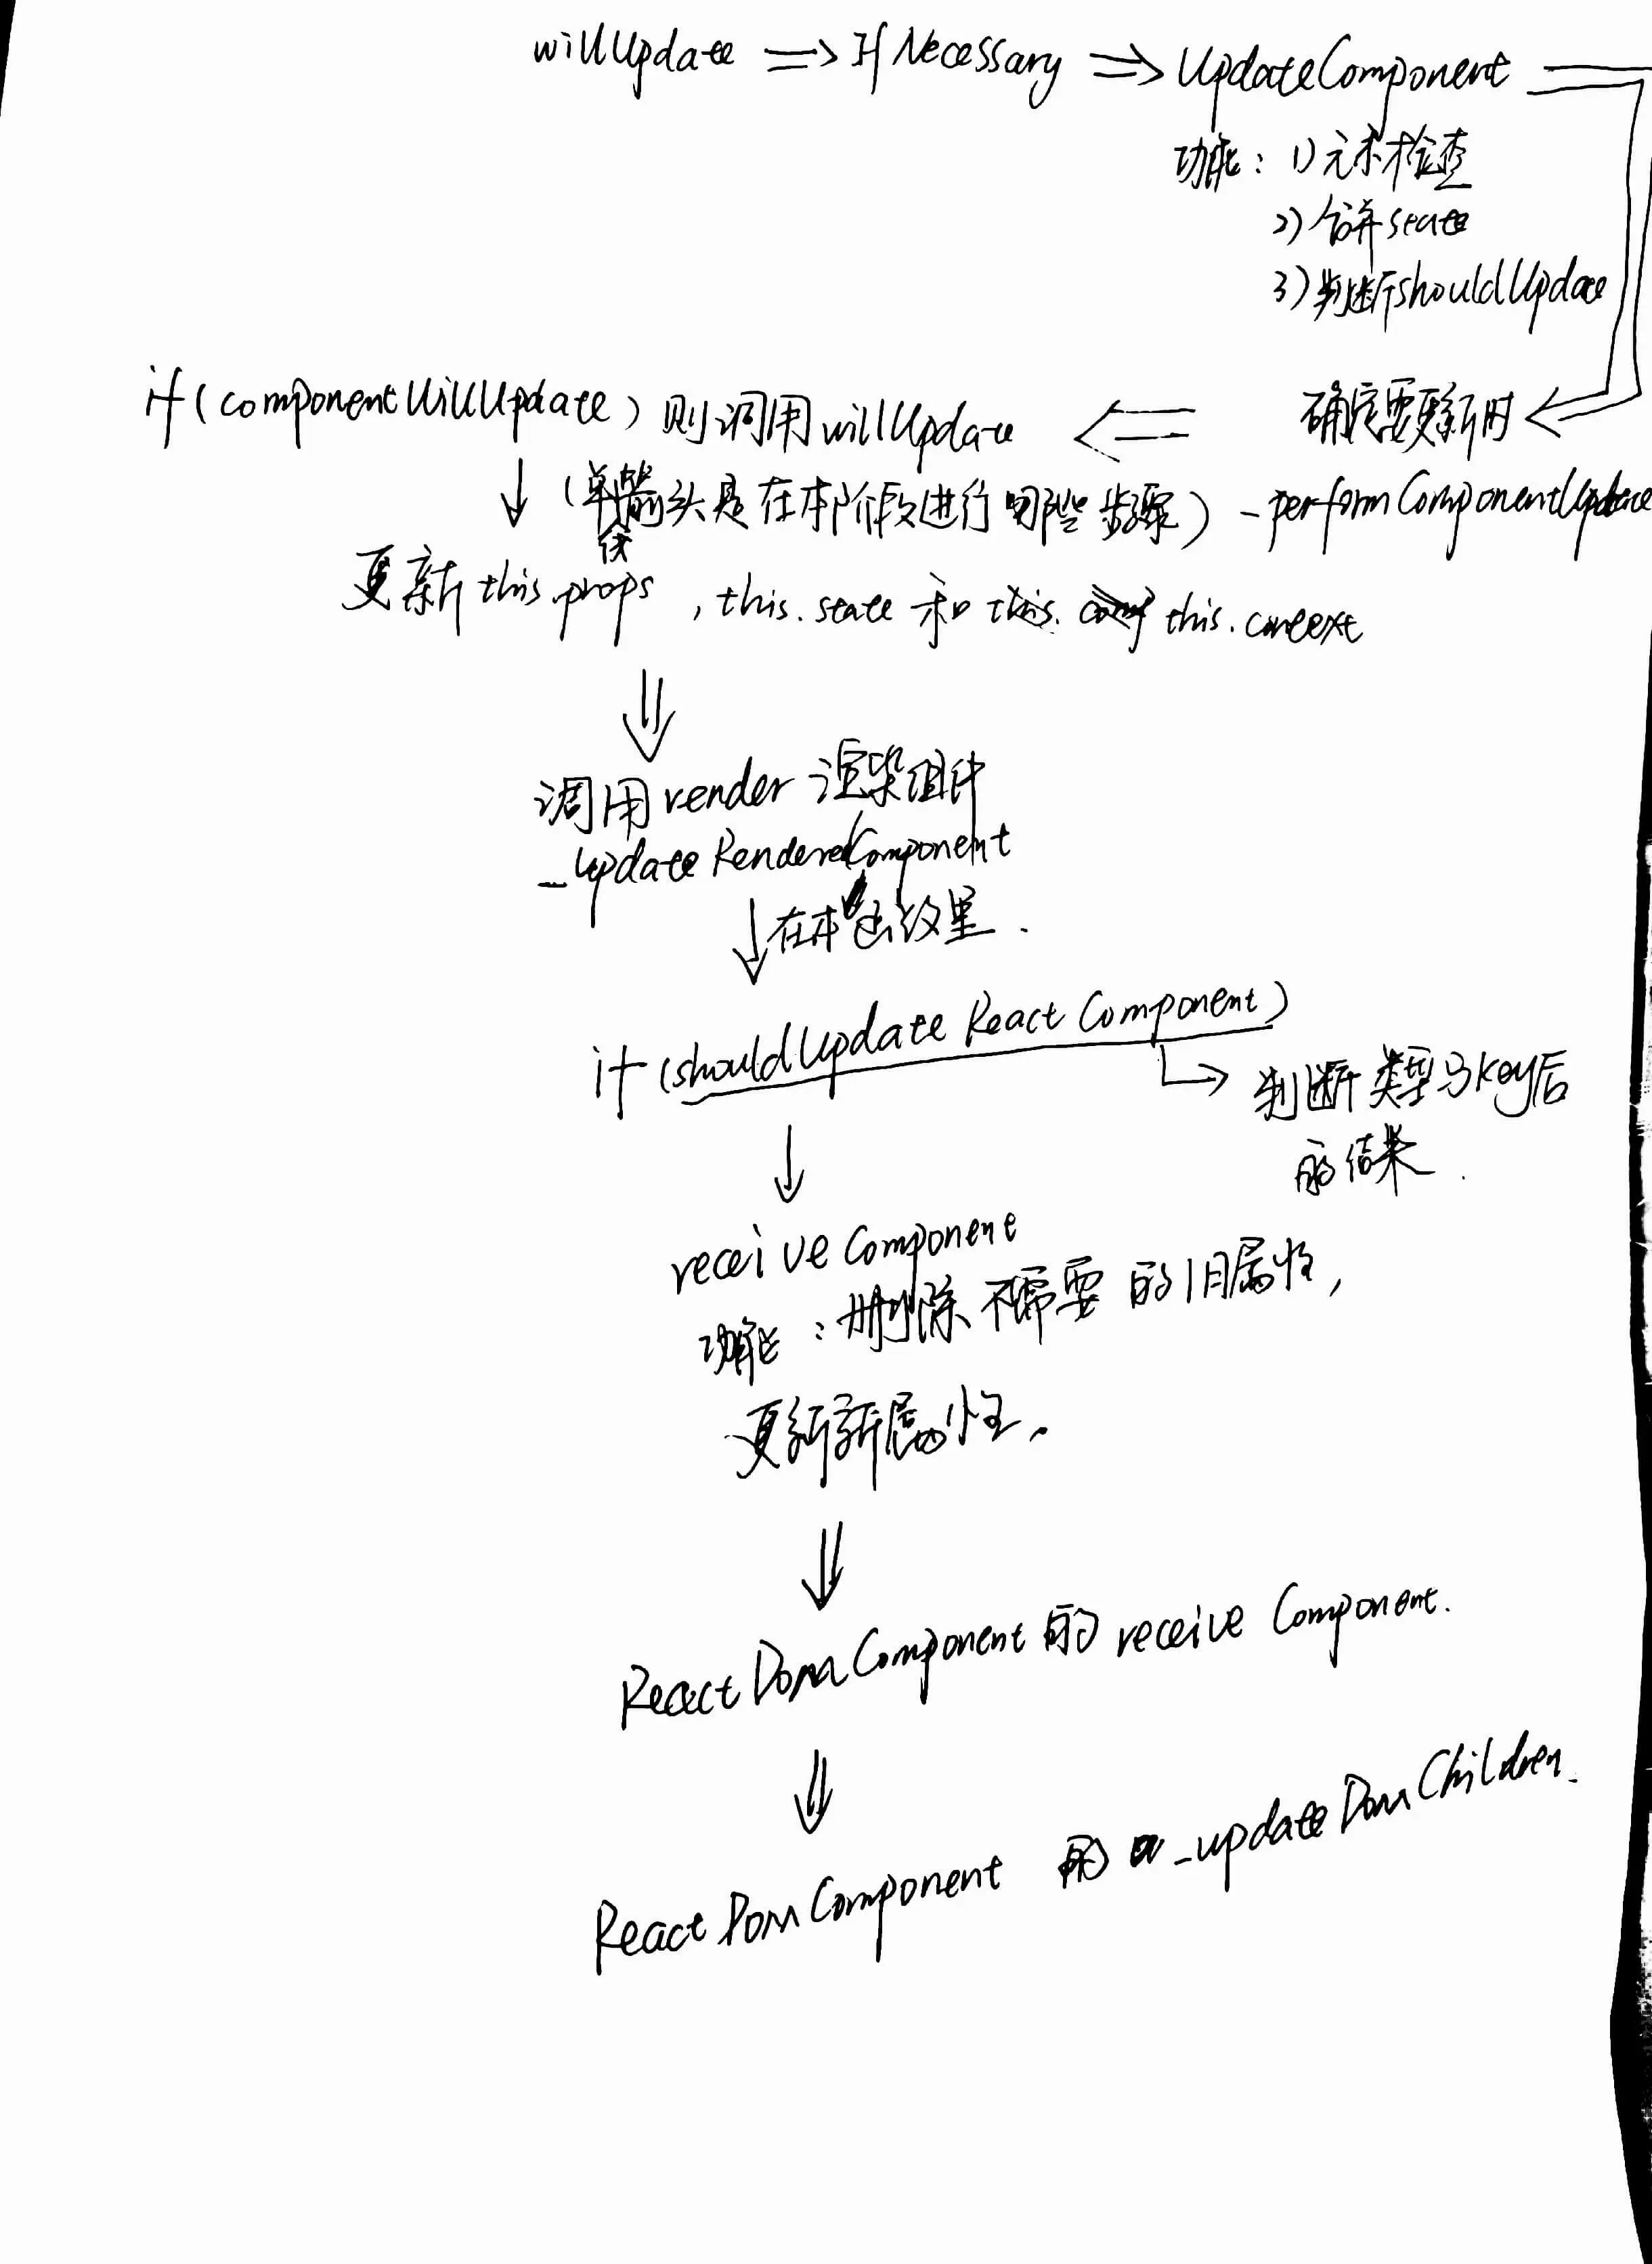 willUpdate => IfNecessary => UpdateComponent
功能: 1)元素检查
2)合并state
3)判断shouldUpdate
确定要更新时
_performComponentUpdate
if(componentWillUpdate)则调用willUpdate
(单箭头是在本阶段进行的步骤)
更新this.props, this.state和this.context
调用render渲染组件
_updateRenderedComponent
在本函数里.
if(shouldUpdateReactComponent)
判断类型与key后
的结果.
receiveComponent
功能:删除不需要的旧属性,
更新新属性。
ReactDomComponent的receiveComponent.
ReactDomComponent的_updateDomChildren.